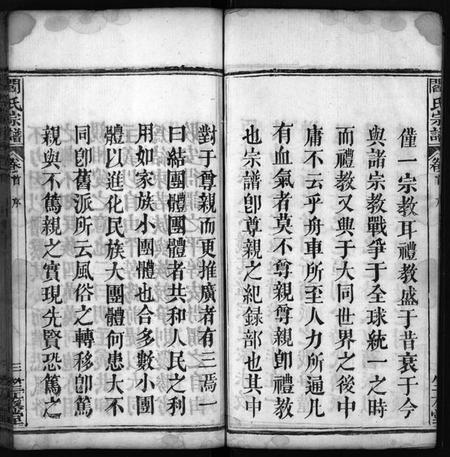 閻氏宗譜
卷首
序
僅一宗教耳禮教盛于昔衰于今
與諸宗教戰爭于全球統一之時
而禮教又興于大同世界之後中
庸不云乎舟車所至人力所通凡
有血氣者莫不尊親尊親卽禮教
也宗譜卽尊親之紀録部也其中
對于尊親而更推廣者有三焉一
曰結團體團體者共和人民之利
用如家族小團體也合多數小團
體以進化民族大團體何患大不
同卽舊派所云風俗之轉移卽篤
親與不篤親之實現先賢恐篤之
閻氏宗譜
卷首
序
三